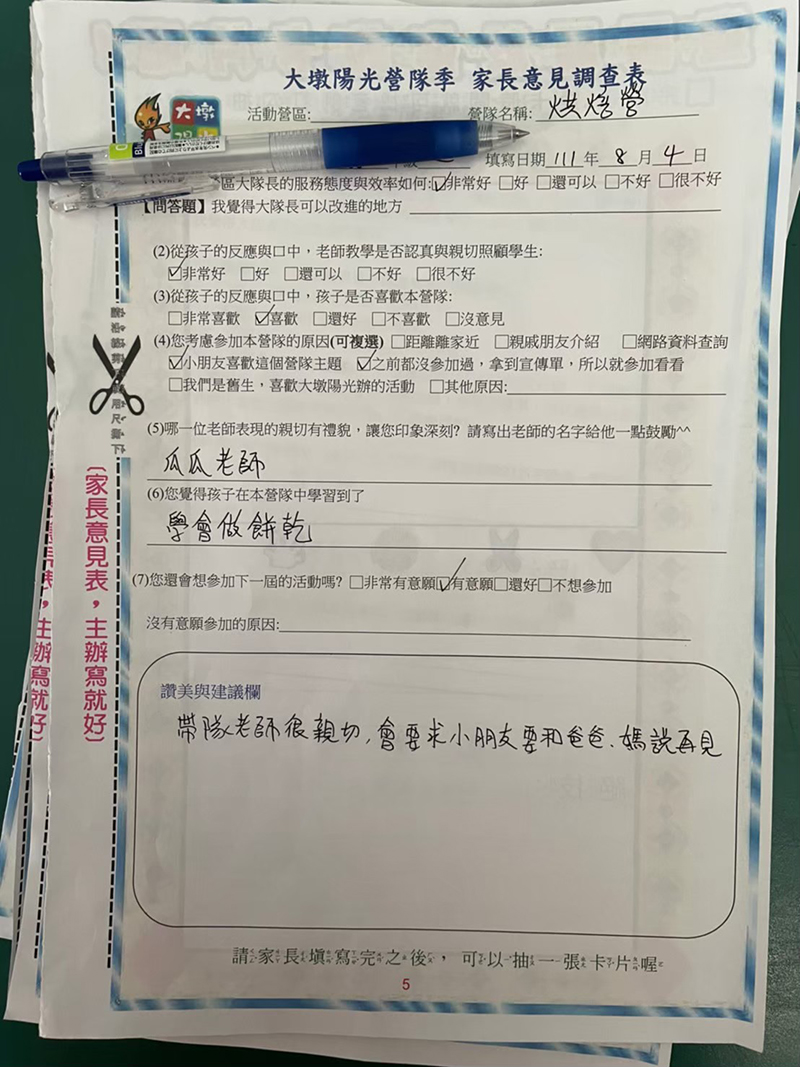 大墩陽光營隊季 家長意見調查表
大墩
活動營區: 營隊名稱: 烘焙營
填寫日期 111 年 8 月 4 日
區大隊長的服務態度與效率如何:☑非常好 □好 □還可以 □不好 □很不好
【問答題】我覺得大隊長可以改進的地方
(2)從孩子的反應與口中，老師教學是否認真與親切照顧學生:
☑非常好 □好 □還可以 □不好 □很不好
(3)從孩子的反應與口中，孩子是否喜歡本營隊:
□非常喜歡 ☑喜歡 □還好 □不喜歡 □沒意見
(4)您考慮參加本營隊的原因(可複選) □距離離家近 □親戚朋友介紹 □網路資料查詢
☑小朋友喜歡這個營隊主題 ☑之前都沒參加過，拿到宣傳單，所以就參加看看
□我們是舊生，喜歡大墩陽光辦的活動 □其他原因:
(5)哪一位老師表現的親切有禮貌，讓您印象深刻? 請寫出老師的名字給他一點鼓勵^^
瓜瓜老師
(6)您覺得孩子在本營隊中學習到了
學會做餅乾
(7)您還會想參加下一屆的活動嗎? □非常有意願☑有意願□還好□不想參加
沒有意願參加的原因:
讚美與建議欄
帶隊老師很親切，會要求小朋友要和爸爸、媽說再見
請家長填寫完之後，可以抽一張卡片喔
5
〔家長意見表，主辦寫就好〕